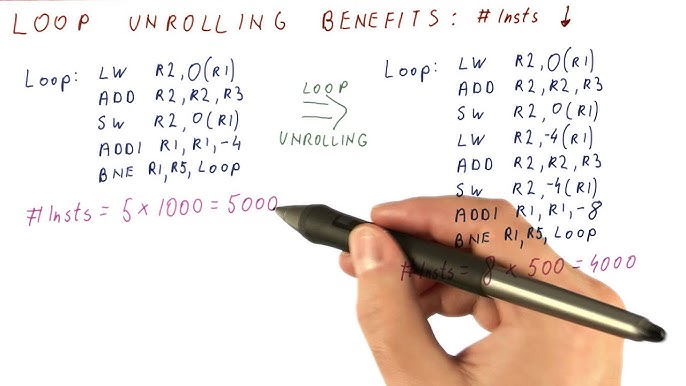 LOOP UNROLLING BENEFITS: # Insts ↓
Loop: LW R2, 0(R1)
ADD R2, R2, R3
SW R2, 0(R1)
ADDI R1, R1, -4
BNE R1, R5, LOOP
# Insts = 5 × 1000 = 5000
LOOP
⇒
UNROLLING
Loop: LW R2, 0(R1)
ADD R2, R2, R3
SW R2, 0(R1)
LW R2, -4(R1)
ADD R2, R2, R3
SW R2, -4(R1)
ADDI R1, R1, -8
BNE R1, R5, LOOP
# Insts = 8 × 500 = 4000